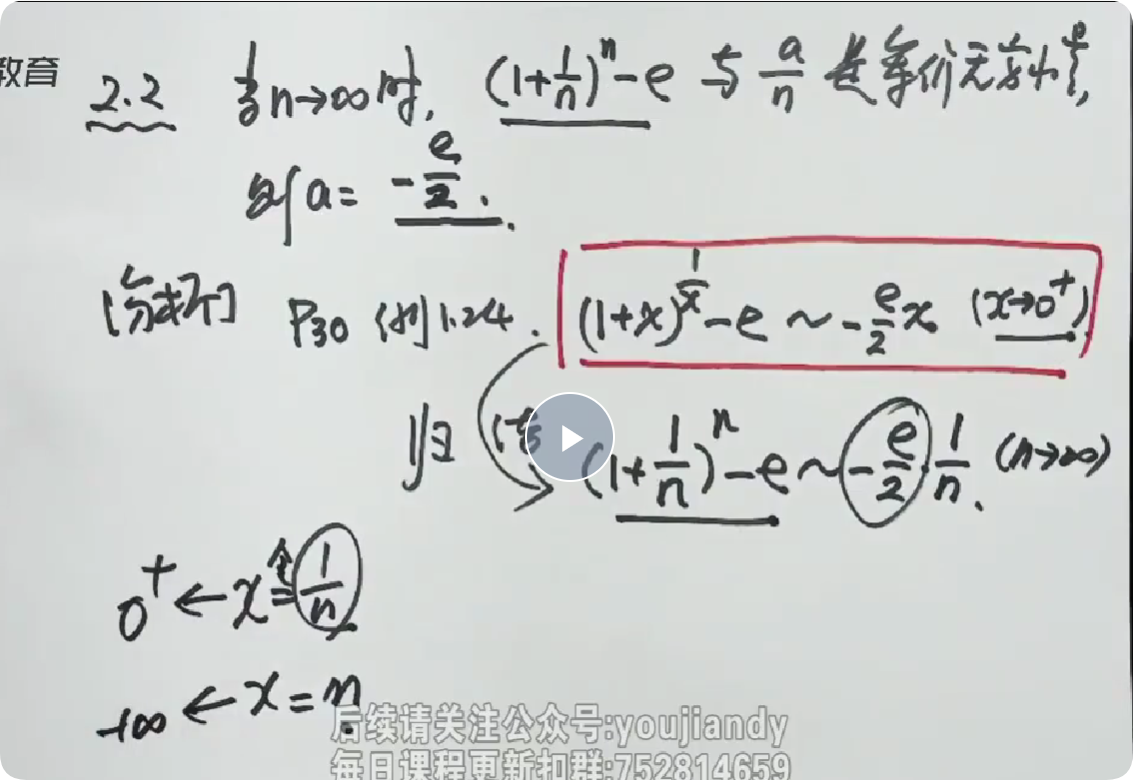 教育
2.2 当n→∞时, (1+1/n)^n-e 与 a/n 是等价无穷小量,
则 a= -e/2 .
[分析] P30 例1.24 . (1+x)^(1/x)-e ~ -e/2 x (x→0⁺)
归 (1+1/n)^n-e ~ -e/2 · 1/n . (n→∞)
0⁺ ← x 令= 1/n
+∞ ← x = n
后续请关注公众号:youjiandy
每日课程更新扣群:752814659